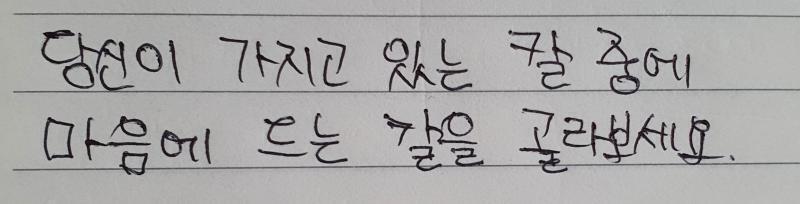 당신이 가지고 있는 칼 중에
마음에 드는 칼을 골라보세요.